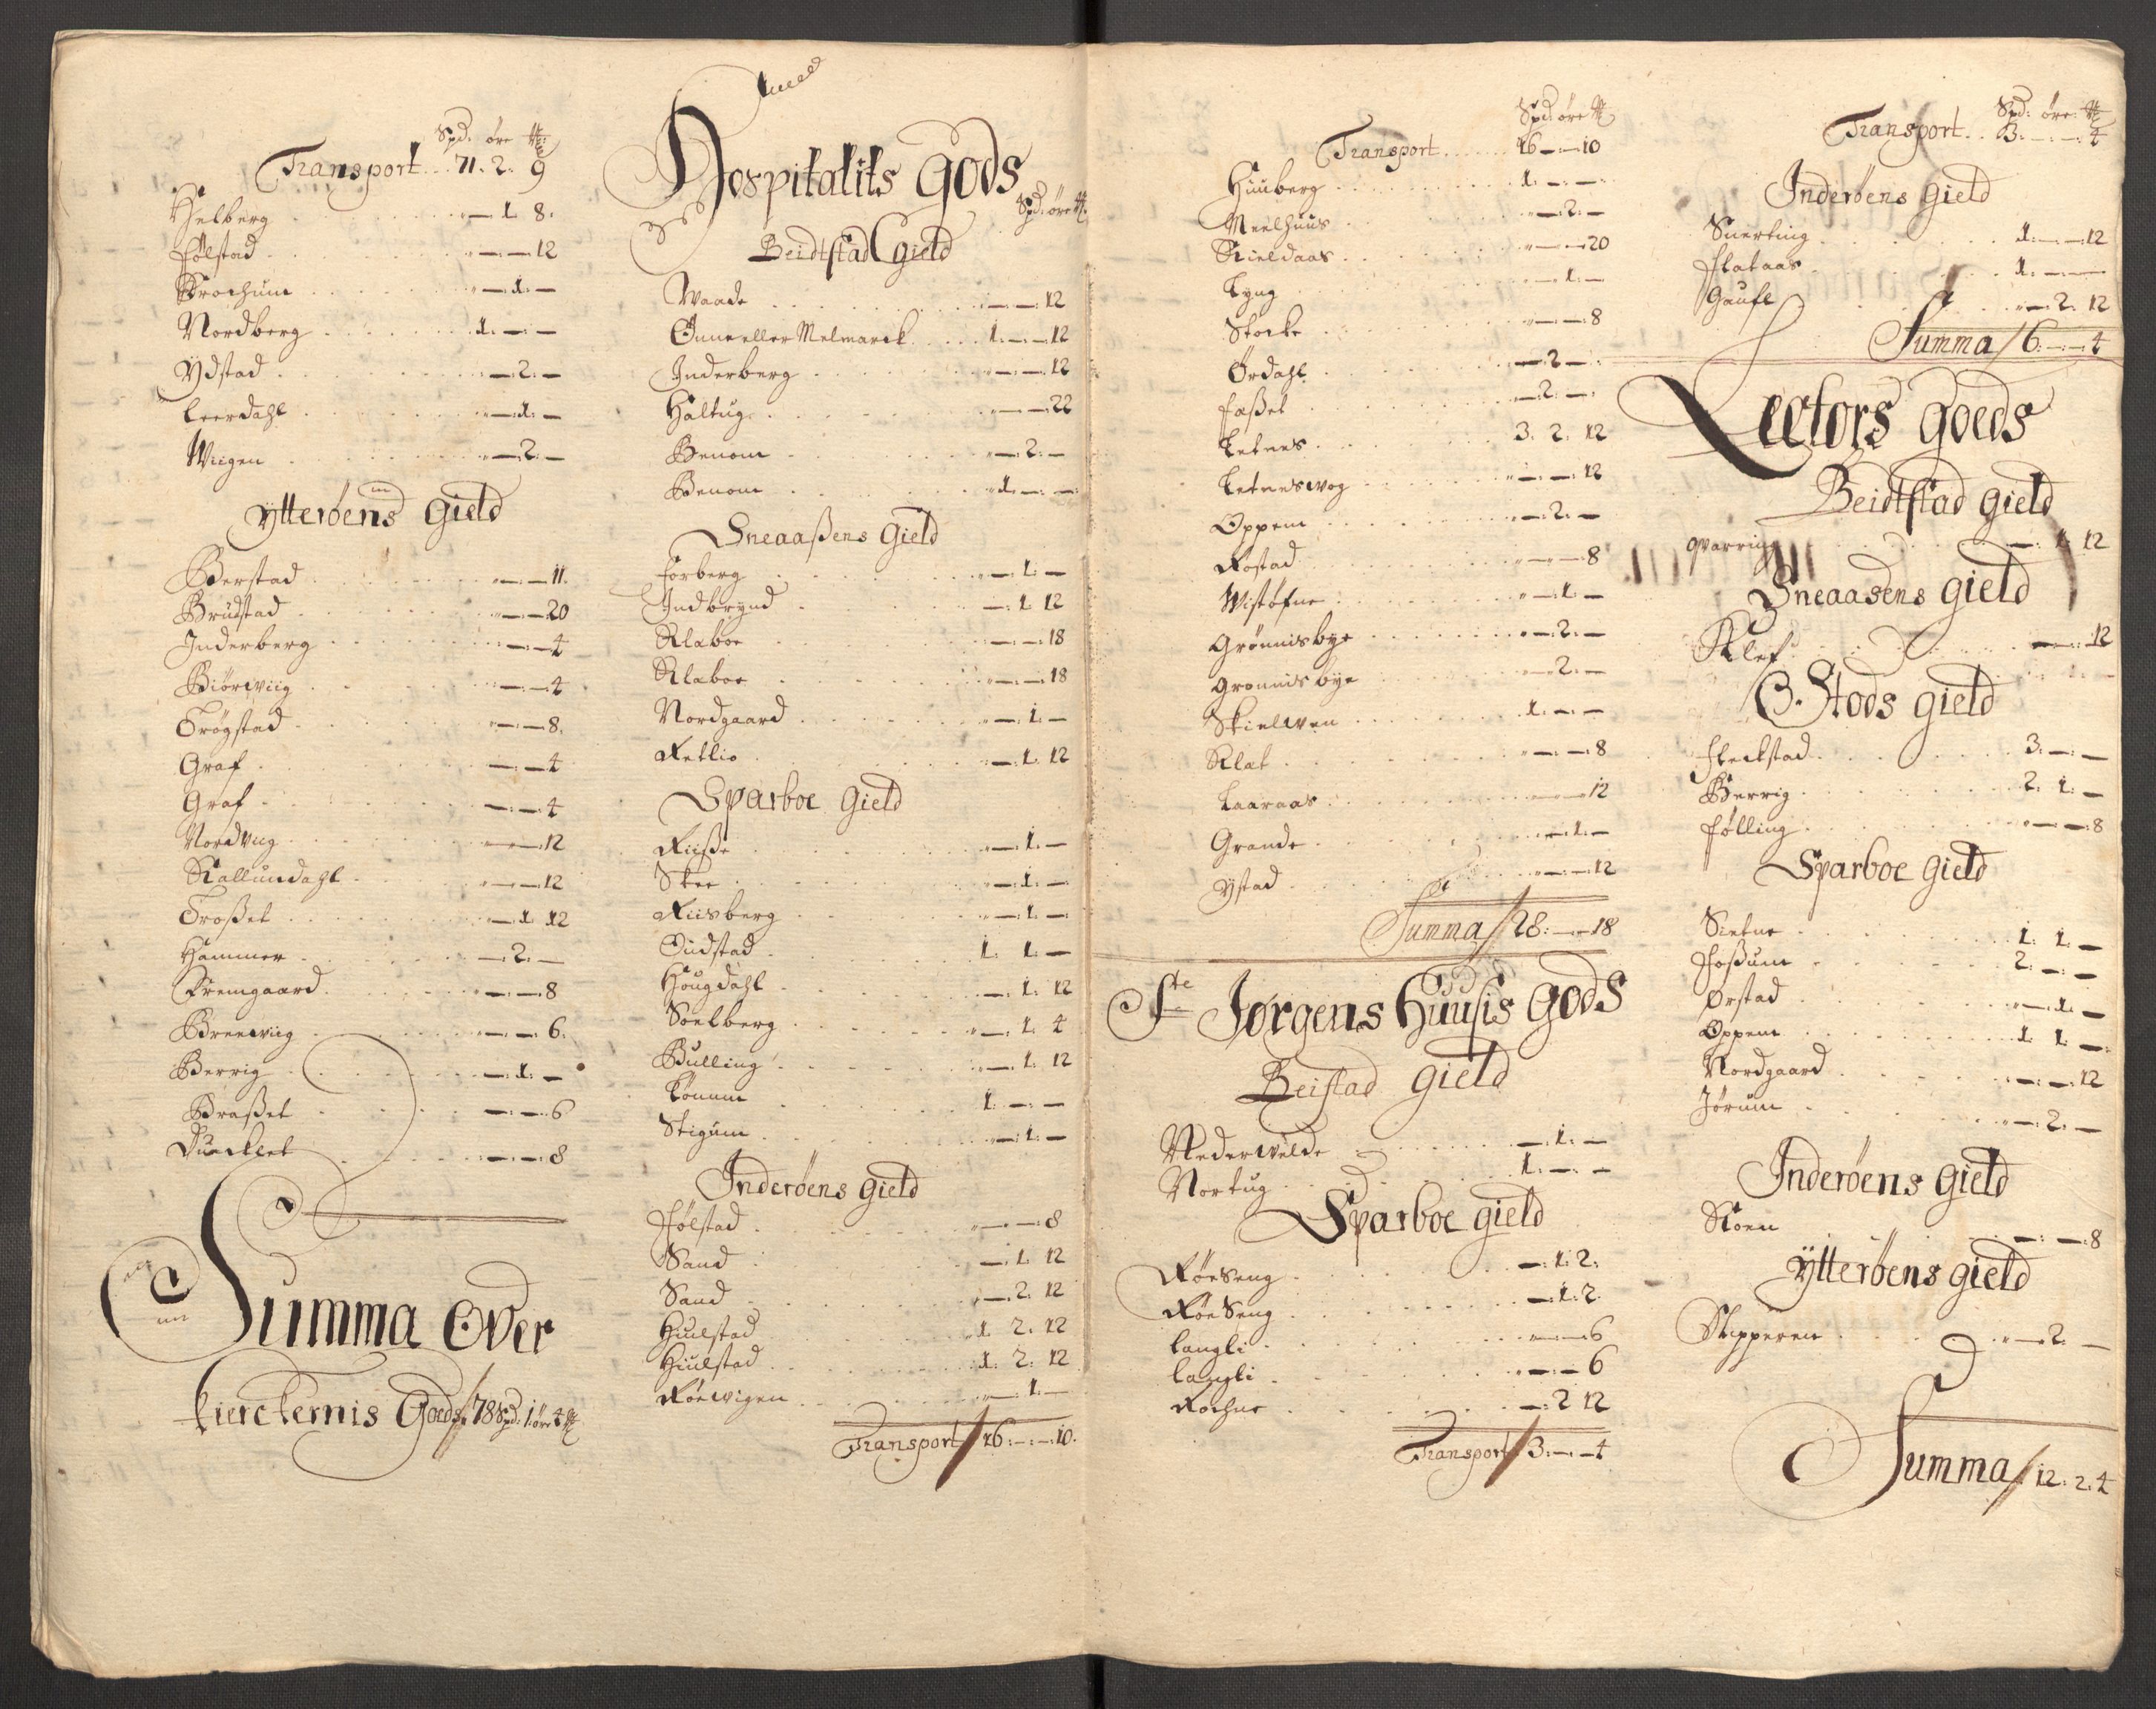 Spd: öre
Transport. 71. 2. 9
Helberg . — 1 8.
Følstad . — — 12
Brochum . — 1: —
Nordberg . 1. — —
Ydstad . — 2: —
Leerdahl . — 1: —
Wiigen . — 2: —
Ytterøens Gield
Berstad . — — 11.
Brustad . — — 20
Inderberg . — — 4
Biörwiig . — — 4
Trögstad . — — 8.
Graf . — — 4
Graf . — — 4
Nordviig . — — 12
Kallundahl . — — 12
Troßet . — 1 12
Hammer . — 2. —
Fremgaard . — — 8
Breewiig . — — 6.
Berrig . — 1: —
Braßet . — — 6
Duacklet . — — 8
Summa Over
kierckernis Goeds 78 Spd: 1 öre 4
Hospitalits Gods
Spd: öre
Beidtstad Gield
Waade . — — 12
Önne eller Melmarck . 1. — 12
Inderberg . — — 12
Haltug . — — 22
Benom . — 2: —
Benom . 1. — —
Sneaaßens Gield
Forberg . — 1: —
Indbrynd . — 1 12
Klaboe . — — 18
Klaboe . — — 18
Nordgaard . — 1: —
Retlio . — 1: 12
Sparboe Gield
Riiße . — 1: —
Skee . — 1: —
Riisberg . — 1: —
Oudstad . 1. 1. —
Hougdahl . — 1: 12
Soelberg . — 1: 4
Bulling . — 1: 12
Lönnum . 1. — —
Stigum . — 1: —
Inderøens Gield
Følstad . — — 8
Sand . — 1. 12
Sand . — 2: 12
Hiulstad . 1 2. 12
Hiulstad . 1. 2: 12
Röewigen . — 1. —
Transport 16: — 10.
Spd: öre
Transport . 16 — 10
Huuberg . 1. — —
Meelhuus . — 2: —
Kieldaas . — — 20
Lyng . — 1. —
Stocke . — — 8
Ørdahl . — 2 —
Faßet . — 2 —
Letnes . 3. 2. 12
Letneswog . — — 12
Oppem . — 2: —
Rostad . — — 8
Wistöfne . — 1: —
Grönnisbye . — 2: —
Gronnisbye . — 2. —
Skielwen . 1. — —
Klat . — — 8
Laaraas . — — 12
Grande . — 1: —
Ystad . — — 12
Summa 28: — 18
Ste Jørgens Huusis Gods
Beistad Gield
Nederwelde . — 1: —
Nortug . 1. — —
Sparboe Gield
Röeseng . — 1: 2:
Röeseng . — 1: 2.
Langli . — — 6
Langli . — — 6
Rochne . — 2 12
Transport 3: — 4
Spd: öre
Transport . 3. — 4
Inderøens Gield
Snerting . 1. — 12
Flataas . 1. — —
Gaufl . — 2: 12
Summa 6. — 4
Lectors Goeds
Beidtstad Gield
Qvarring . — 1 12
Sneaasens Gield
Klef . — — 12
Stods Gield
Fleckstad . 3. — —
Berrig . 2. 1. —
Følling . — — 8
Sparboe Gield
Sietne . 1. 1. —
Foßum . 2. — —
Ørstad . — 1. —
Oppem . 1. 1. —
Nordgaard . — — 12
Jörum . — 2. —
Inderøens Gield
Koen . — — 8
Ytterøens Gield
Skipperen . — 2. —
Summa 12: 2. 4